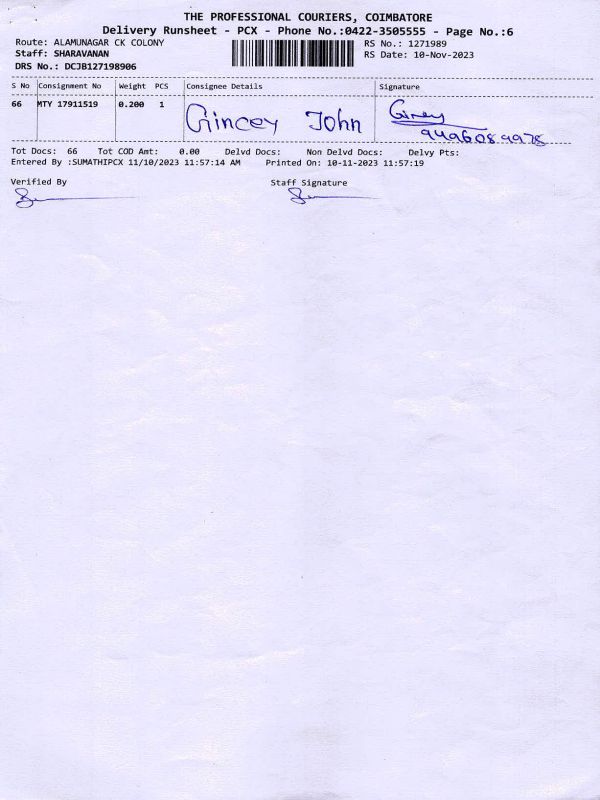 THE PROFESSIONAL COURIERS, COIMBATORE
Delivery Runsheet - PCX - Phone No.:0422-3505555 - Page No.:6
Route: ALAMUNAGAR CK COLONY RS No.: 1271989
Staff: SHARAVANAN RS Date: 10-Nov-2023
DRS No.: DCJB127198906
S No Consignment No Weight PCS Consignee Details Signature
66 MTY 17911519 0.200 1 Gincey John
9496089978
Tot Docs: 66 Tot COD Amt: 0.00 Delvd Docs: Non Delvd Docs: Delvy Pts:
Entered By :SUMATHIPCX 11/10/2023 11:57:14 AM Printed On: 10-11-2023 11:57:19
Verified By Staff Signature